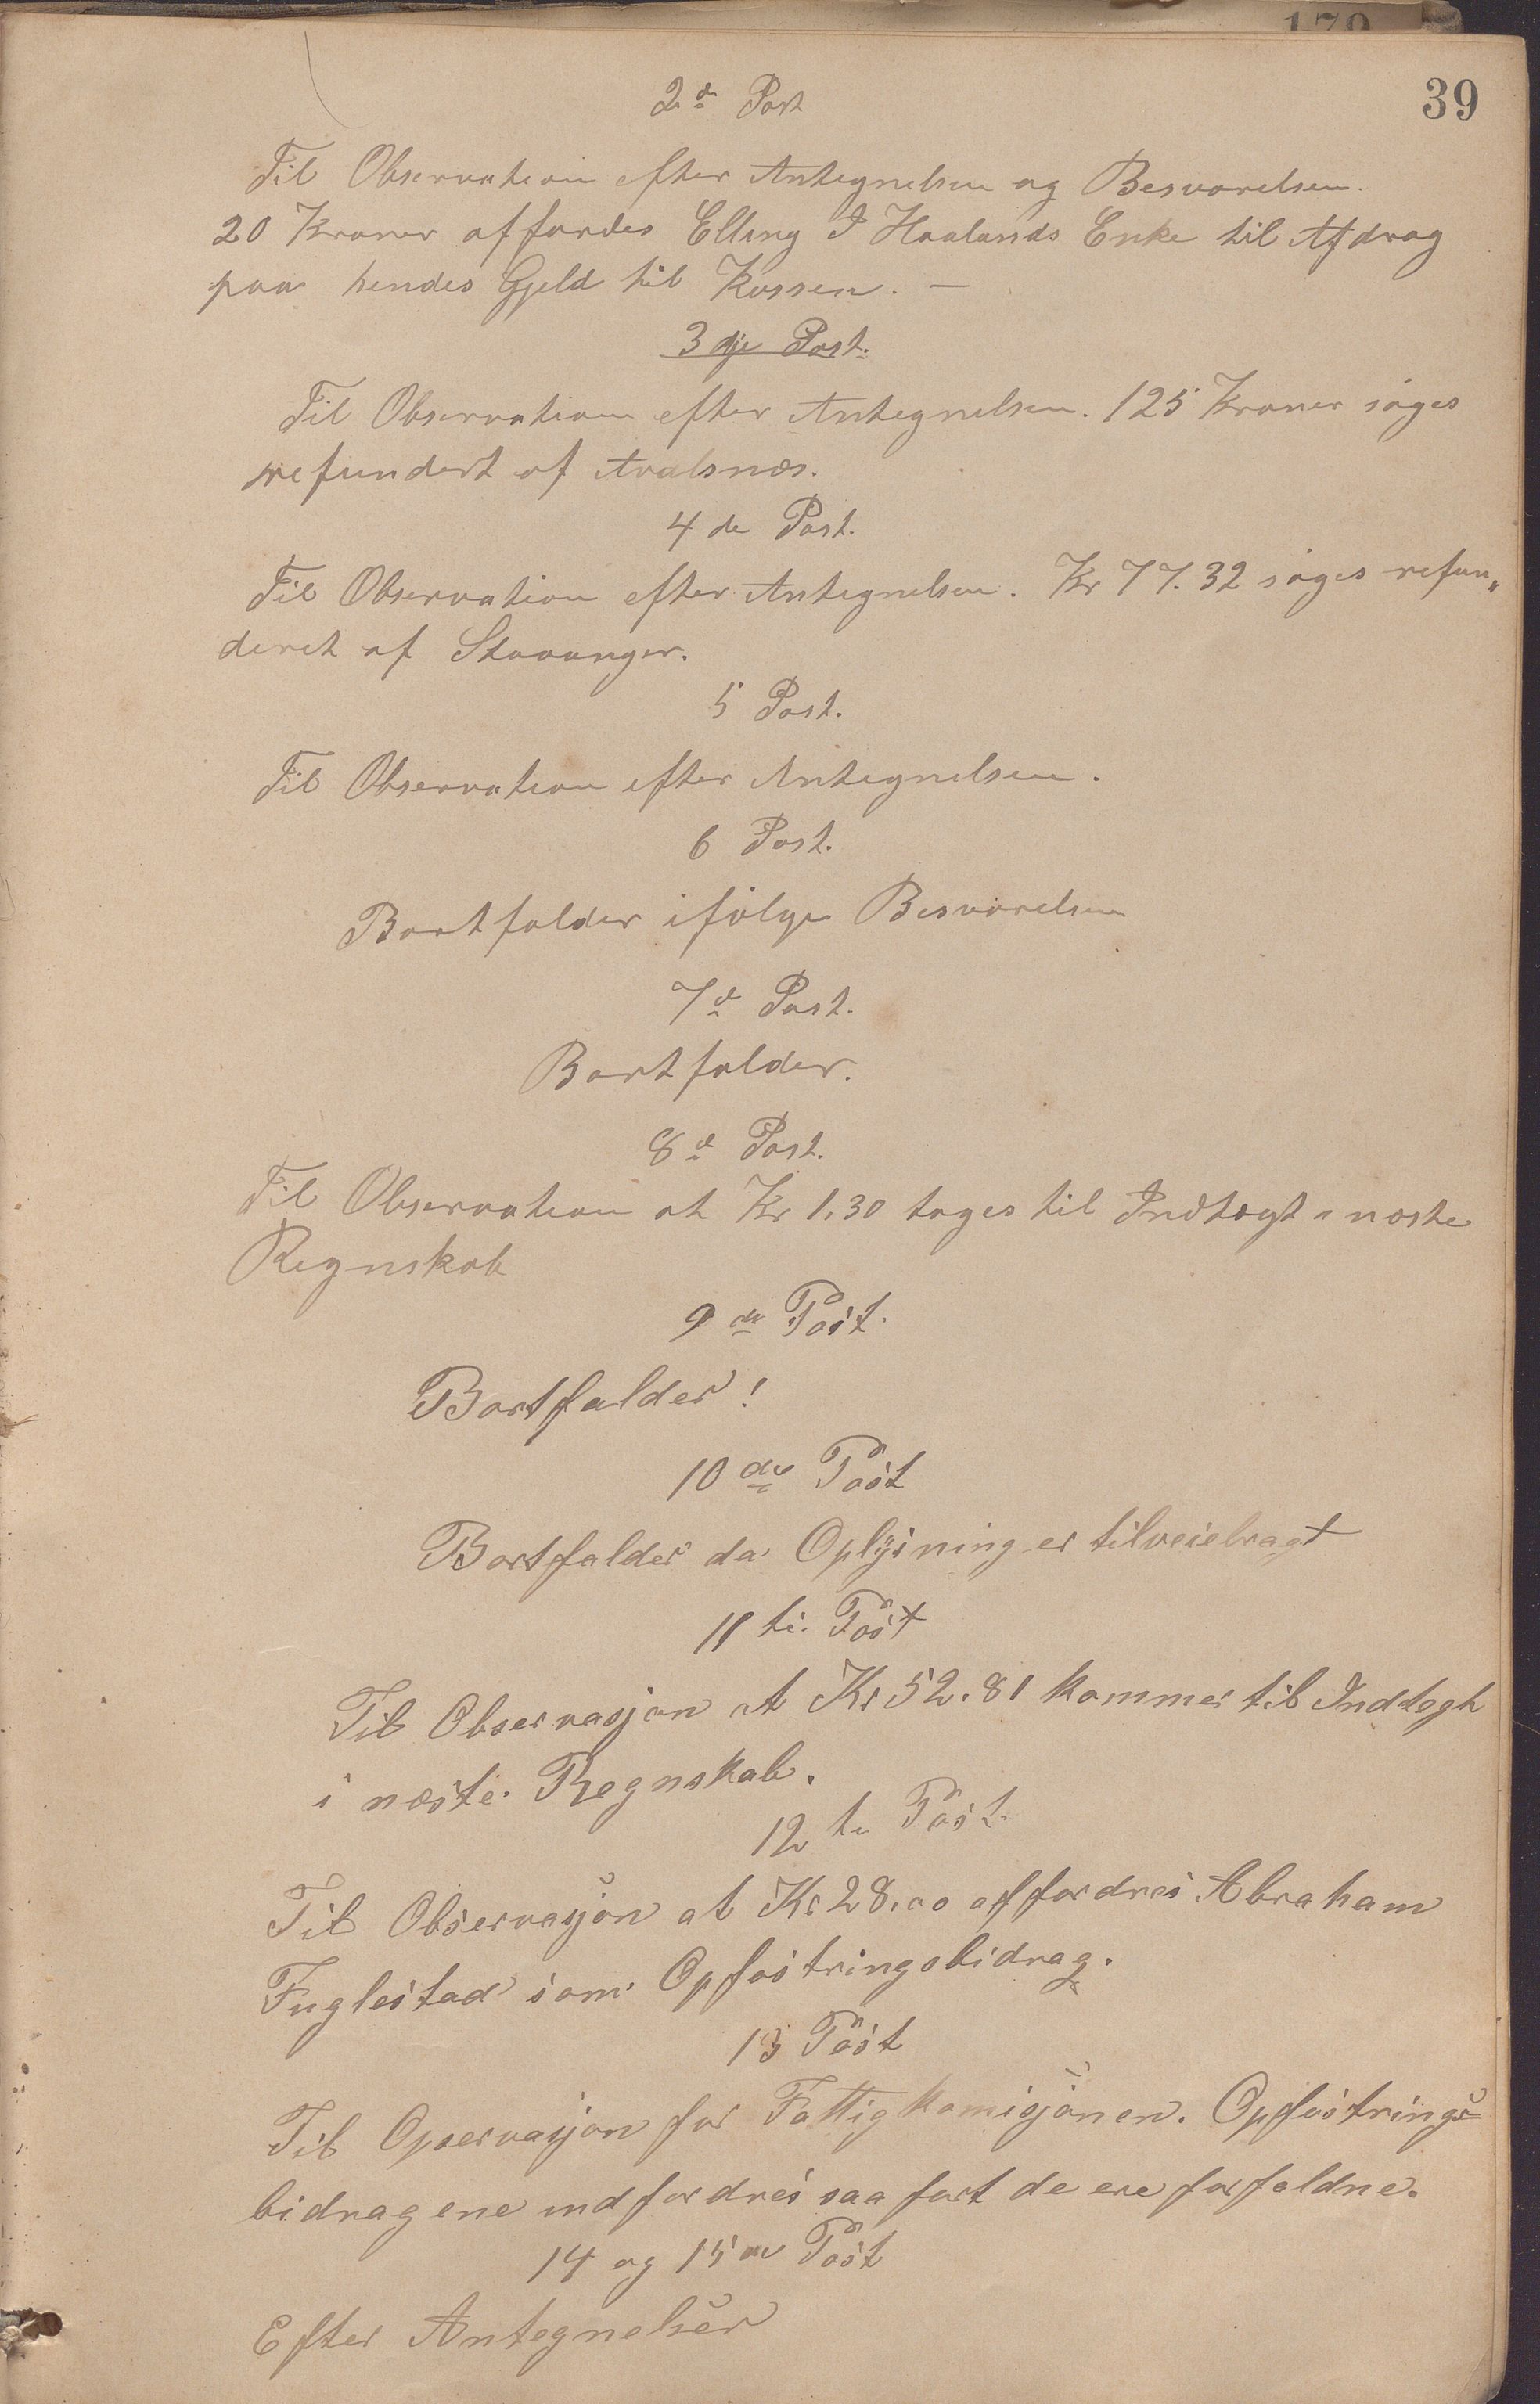 39
2de Post
Til Observation efter Antegnelsen og Besvarelsen.
20 Kroner affordes Elling I Haalands Enke til Afdrag
paa hendes Gjeld til Kassen. —
3dje Post.
Til Observation efter Antegnelsen. 125 Kroner søges
refundert af Avalsnæs.
4de Post.
Til Observation efter Antegnelsen. Kr 77.32 søges refun„
deret af Stavanger.
5 Post.
Til Observation efter Antegnelsen.
6 Post.
Bortfalder ifølge Besvarelsen
7d Post.
Bortfalder.
8d Post.
Til Observation at Kr 1,30 tages til Indtægt i næste
Regnskab
9de Post.
Bortfalder!
10de Post
Bortfalder da Oplysning er tilveiebragt
11te Post
Til Observasjon at Kr 52.81 kommer til Indtegt
i næste Regnskab.
12te Post.
Til Observasjon at Kr 28,00 affordres Abraham
Fuglestad som Opfostringsbidrag.
13 Post
Til Opservasjon for Fattigkomisjonen. Opfostrings-
bidragene indfordres saa fort de ere forfaldne.
14 og 15de Post
Efter Antegnelsen